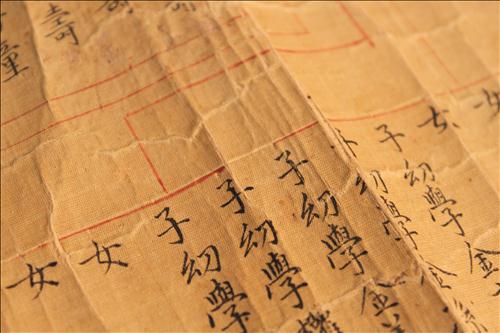 女
女
子幼學金
子幼學金
子幼學金
子幼學
子幼學
女
女
壽
童